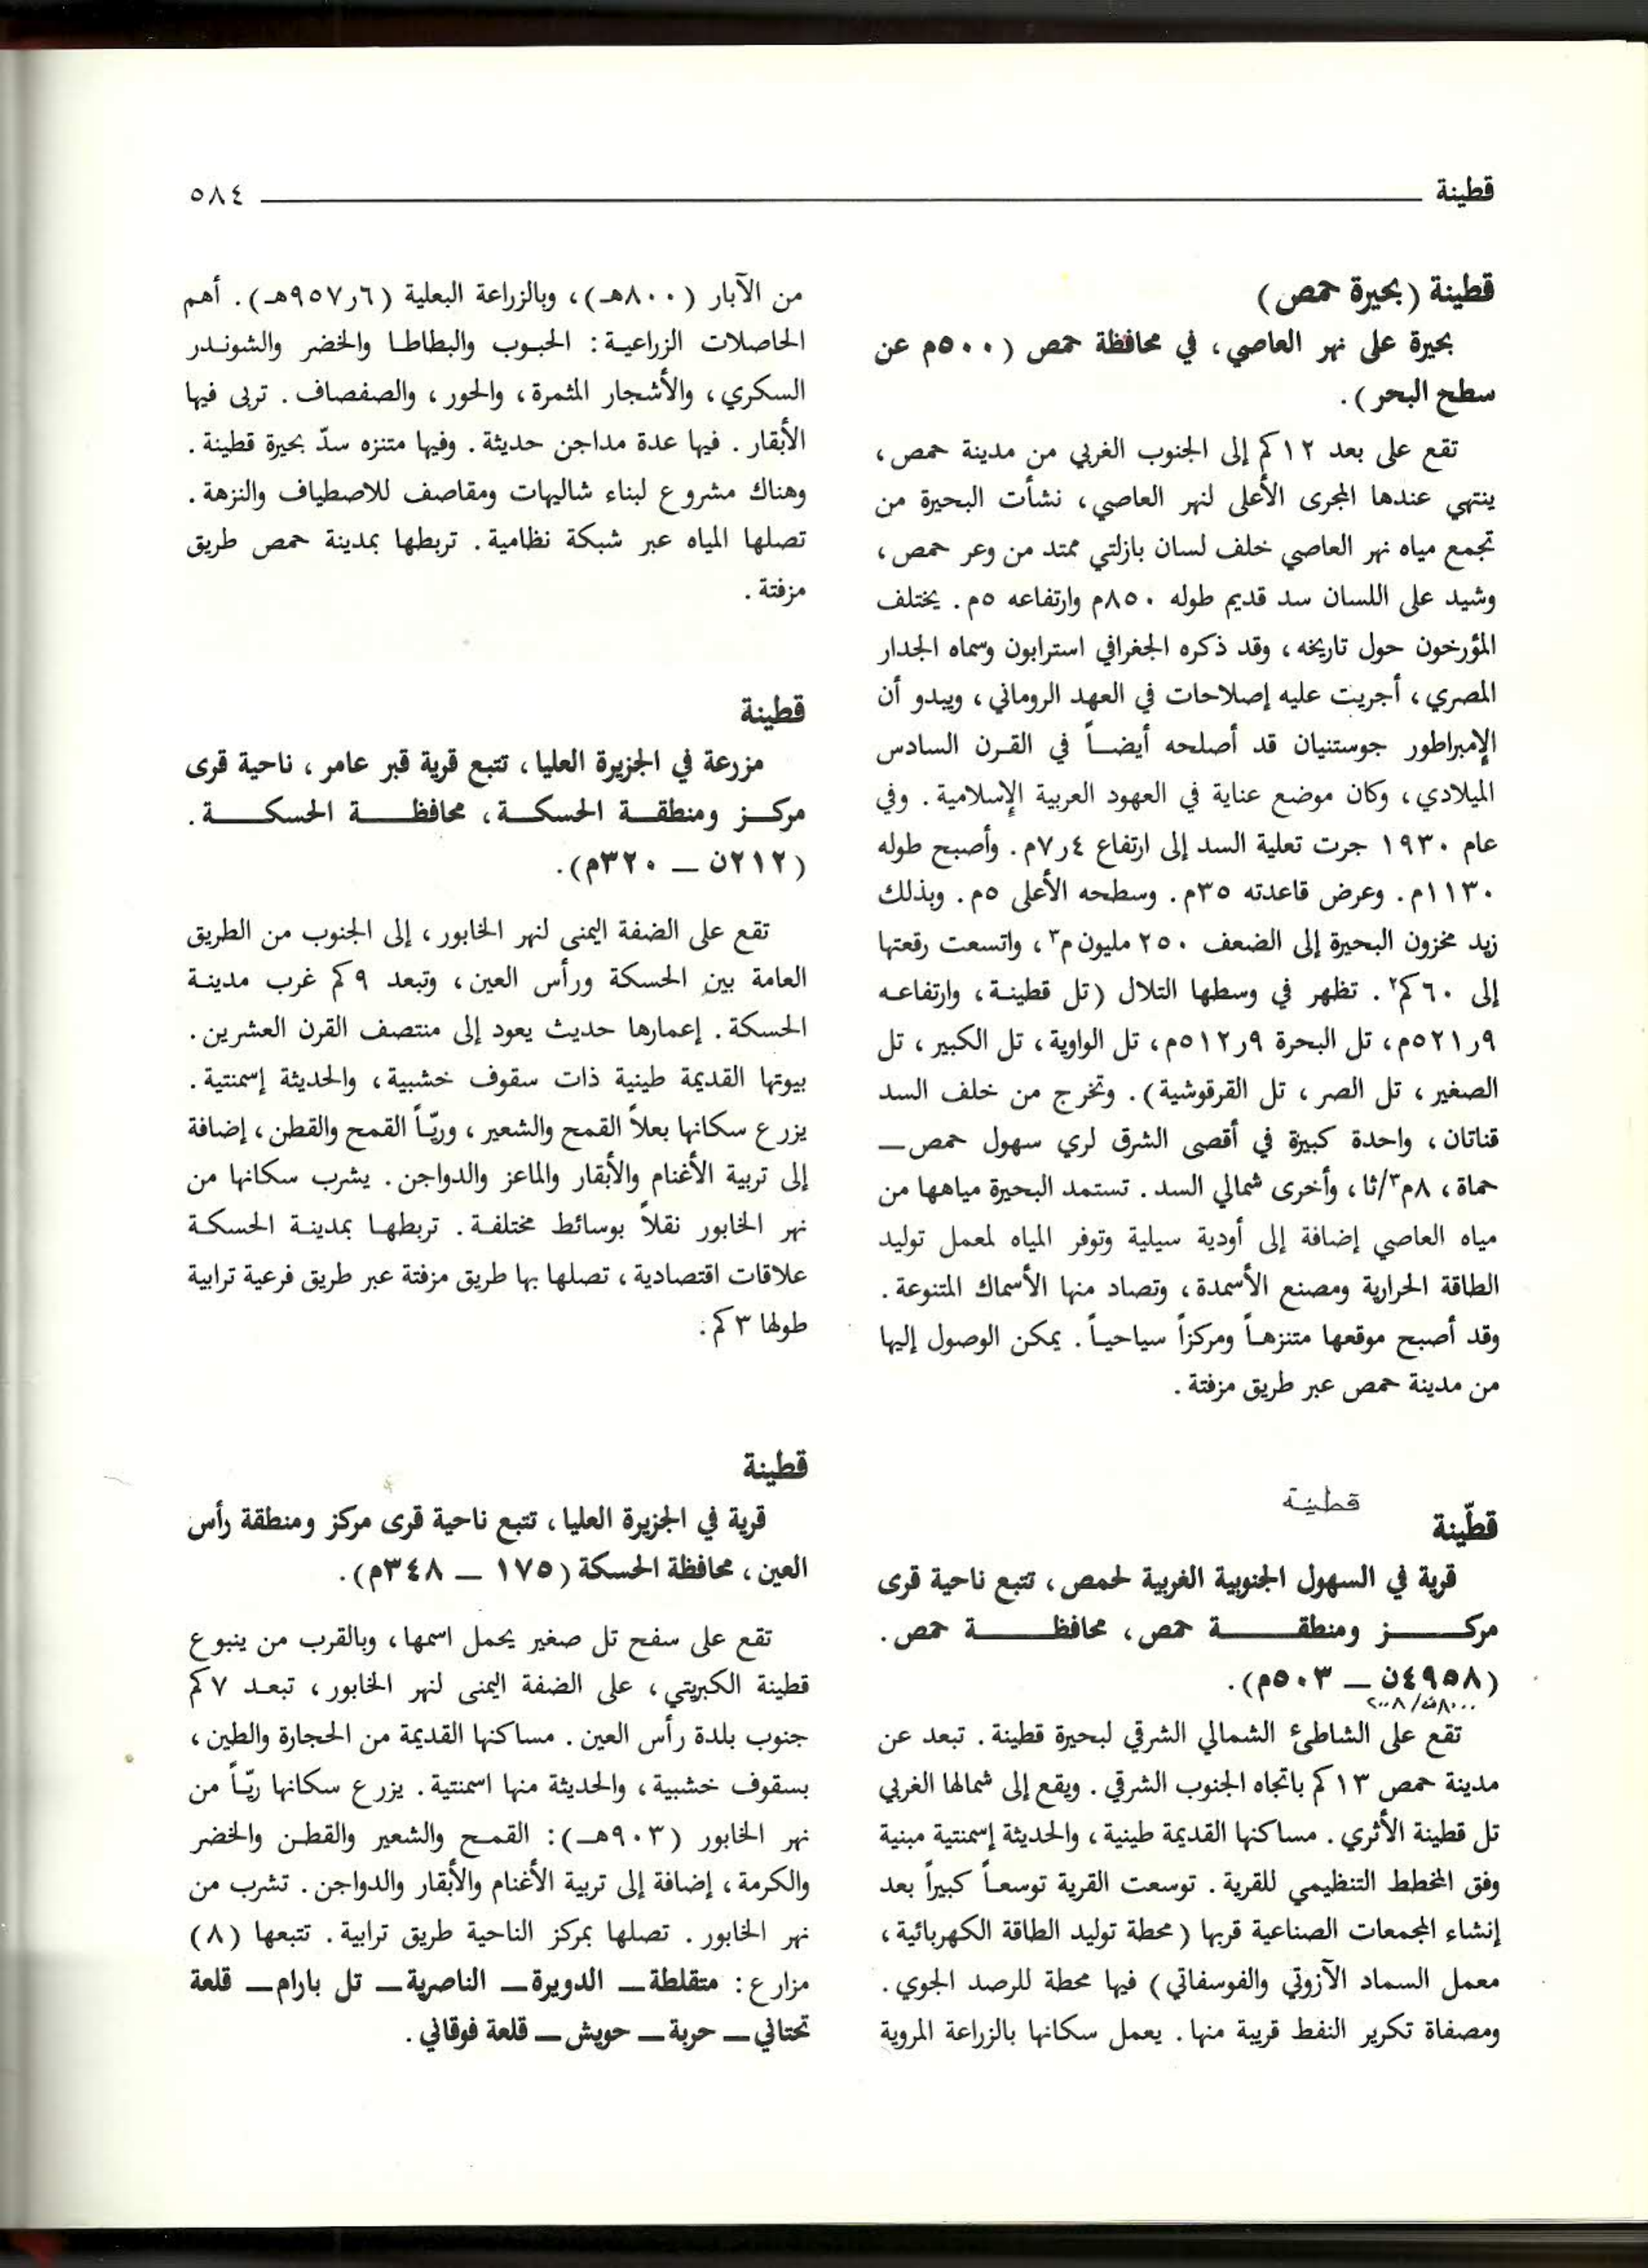 قطينة ٥٨٤
قطينة (بحيرة حمص)
بحيرة على نهر العاصي، في محافظة حمص (٥٠٠م عن
سطح البحر).
تقع على بعد ١٢كم إلى الجنوب الغربي من مدينة حمص،
ينتهي عندها المجرى الأعلى لنهر العاصي، نشأت البحيرة من
تجمع مياه نهر العاصي خلف لسان بازلتي ممتد من وعر حمص،
وشيد على اللسان سد قديم طوله ٨٥٠م وارتفاعه ٥م. يختلف
المؤرخون حول تاريخه، وقد ذكره الجغرافي استرابون وسماه الجدار
المصري، أجريت عليه إصلاحات في العهد الروماني، ويبدو أن
الإمبراطور جوستنيان قد أصلحه أيضاً في القرن السادس
الميلادي، وكان موضع عناية في العهود العربية الإسلامية. وفي
عام ١٩٣٠ جرت تعلية السد إلى ارتفاع ٤ر٧م. وأصبح طوله
١١٣٠م. وعرض قاعدته ٣٥م. وسطحه الأعلى ٥م. وبذلك
زيد مخزون البحيرة إلى الضعف ٢٥٠ مليون م٣، واتسعت رقعتها
إلى ٦٠كم٢. تظهر في وسطها التلال (تل قطينة، وارتفاعه
٩ر٥٢١م، تل البحرة ٩ر٥١٢م، تل الواوية، تل الكبير، تل
الصغير، تل الصر، تل القرقوشية). وتخرج من خلف السد
قناتان، واحدة كبيرة في أقصى الشرق لري سهول حمص ــ
حماة، ٨م٣/ثا، وأخرى شمالي السد. تستمد البحيرة مياهها من
مياه العاصي إضافة إلى أودية سيلية وتوفر المياه لمعمل توليد
الطاقة الحرارية ومصنع الأسمدة، وتصاد منها الأسماك المتنوعة.
وقد أصبح موقعها متنزهاً ومركزاً سياحياً. يمكن الوصول إليها
من مدينة حمص عبر طريق مزفتة.
قطّينة قطينة
قرية في السهول الجنوبية الغربية لحمص، تتبع ناحية قرى
مركز ومنطقة حمص، محافظة حمص.
(٤٩٥٨ن ــ ٥٠٣م).
٨٠٠٠ن/٢٠٠٨
تقع على الشاطئ الشمالي الشرقي لبحيرة قطينة. تبعد عن
مدينة حمص ١٣كم باتجاه الجنوب الشرقي. ويقع إلى شمالها الغربي
تل قطينة الأثري. مساكنها القديمة طينية، والحديثة إسمنتية مبنية
وفق المخطط التنظيمي للقرية. توسعت القرية توسعاً كبيراً بعد
إنشاء المجمعات الصناعية قربها (محطة توليد الطاقة الكهربائية،
معمل السماد الآزوتي والفوسفاتي) فيها محطة للرصد الجوي.
ومصفاة تكرير النفط قريبة منها. يعمل سكانها بالزراعة المروية
من الآبار (٨٠٠هـ)، وبالزراعة البعلية (٦ر٩٥٧هـ). أهم
الحاصلات الزراعية: الحبوب والبطاطا والخضر والشوندر
السكري، والأشجار المثمرة، والحور، والصفصاف. تربى فيها
الأبقار. فيها عدة مداجن حديثة. وفيها متنزه سدّ بحيرة قطينة.
وهناك مشروع لبناء شاليهات ومقاصف للاصطياف والنزهة.
تصلها المياه عبر شبكة نظامية. تربطها بمدينة حمص طريق
مزفتة.
قطينة
مزرعة في الجزيرة العليا، تتبع قرية قبر عامر، ناحية قرى
مركز ومنطقة الحسكة، محافظة الحسكة.
(٢١٢ن ــ ٣٢٠م).
تقع على الضفة اليمنى لنهر الخابور، إلى الجنوب من الطريق
العامة بين الحسكة ورأس العين، وتبعد ٩كم غرب مدينة
الحسكة. إعمارها حديث يعود إلى منتصف القرن العشرين.
بيوتها القديمة طينية ذات سقوف خشبية، والحديثة إسمنتية.
يزرع سكانها بعلاً القمح والشعير، وريّاً القمح والقطن، إضافة
إلى تربية الأغنام والأبقار والماعز والدواجن. يشرب سكانها من
نهر الخابور نقلاً بوسائط مختلفة. تربطها بمدينة الحسكة
علاقات اقتصادية، تصلها بها طريق مزفتة عبر طريق فرعية ترابية
طولها ٣كم.
قطينة
قرية في الجزيرة العليا، تتبع ناحية قرى مركز ومنطقة رأس
العين، محافظة الحسكة (١٧٥ ــ ٣٤٨م).
تقع على سفح تل صغير يحمل اسمها، وبالقرب من ينبوع
قطينة الكبريتي، على الضفة اليمنى لنهر الخابور، تبعد ٧كم
جنوب بلدة رأس العين. مساكنها القديمة من الحجارة والطين،
بسقوف خشبية، والحديثة منها اسمنتية. يزرع سكانها ريّاً من
نهر الخابور (٩٠٣هـ): القمح والشعير والقطن والخضر
والكرمة، إضافة إلى تربية الأغنام والأبقار والدواجن. تشرب من
نهر الخابور. تصلها بمركز الناحية طريق ترابية. تتبعها (٨)
مزارع: متقلطة ــ الدويرة ــ الناصرية ــ تل بارام ــ قلعة
تحتاني ــ حربة ــ حويش ــ قلعة فوقاني.